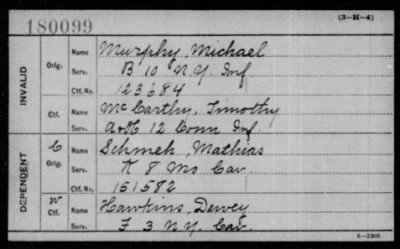 180099
(3-H-4)
INVALID
Orig.
Name Murphy, Michael
Serv. B 10 N.Y. Inf
Ctf. No. 123684
Ctf.
Name McCarthy, Timothy
Serv. A&H 12 Conn Inf.
DEPENDENT
C
Orig.
Name Schmeh, Mathias
Serv. K 8 Mo Cav.
Ctf. No. 151582
W
Ctf.
Name Hawkins, Dewey
Serv. F 3 N.Y. Cav.